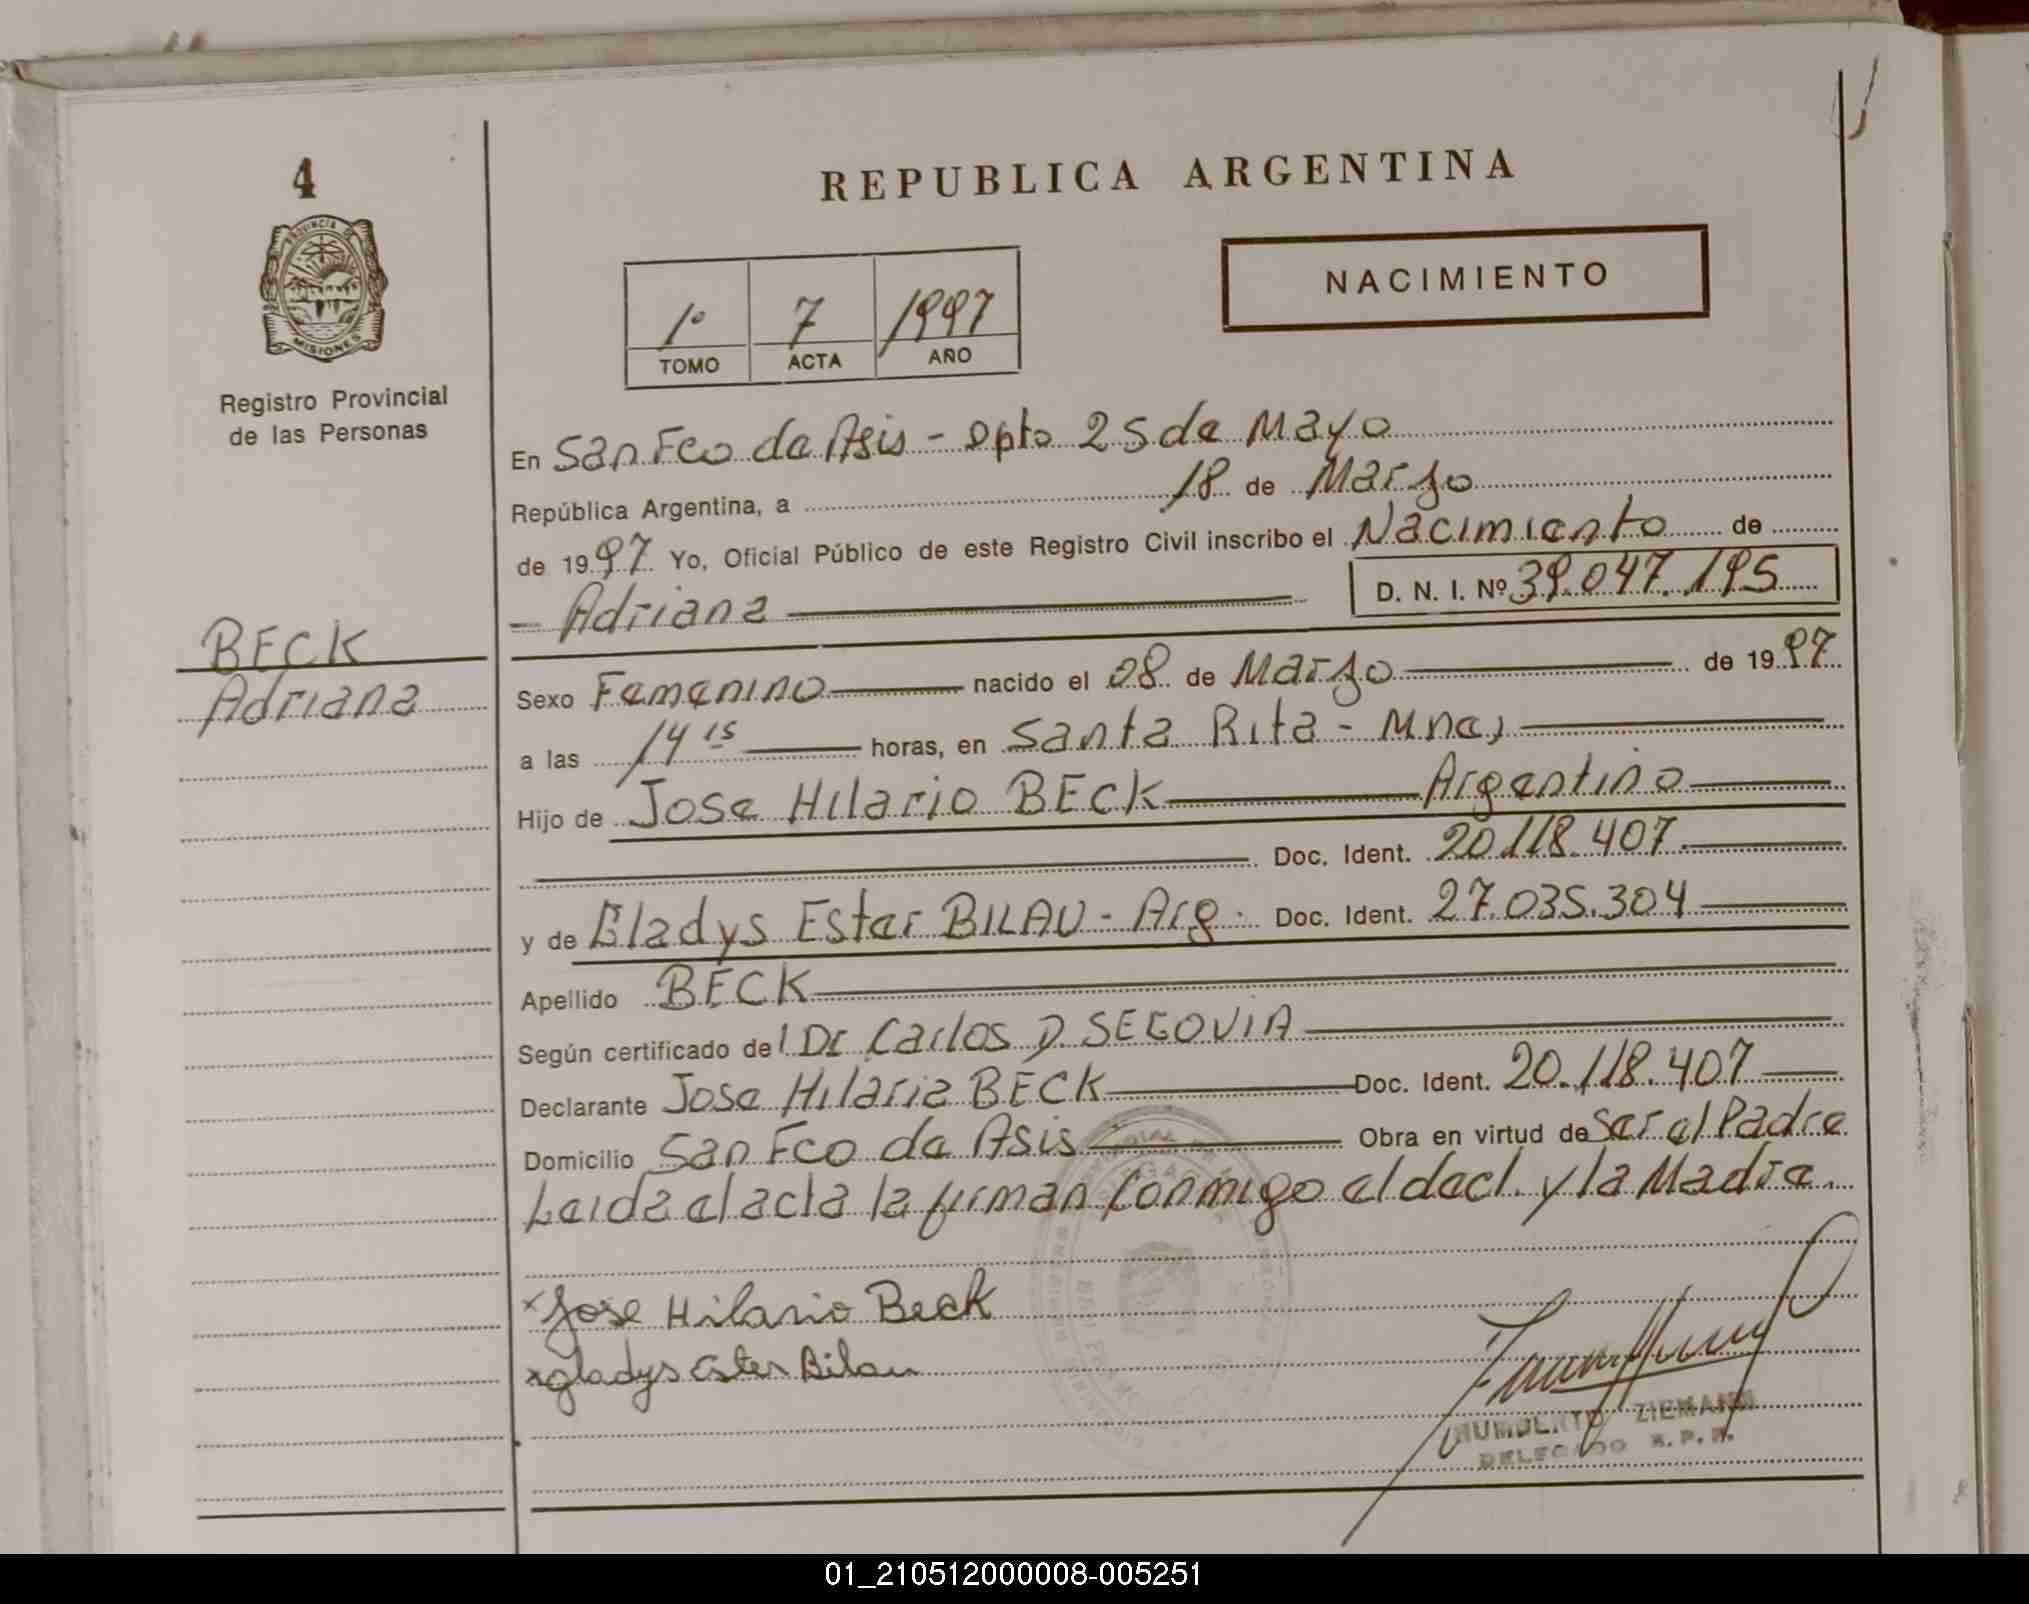 4
REPUBLICA ARGENTINA
PROVINCIA DE
MISIONES
NACIMIENTO
1º 7 1997
TOMO ACTA AÑO
Registro Provincial
de las Personas
En San Fco de Asis - Dpto 25 de Mayo
República Argentina, a 18 de Marzo
de 1997 Yo, Oficial Público de este Registro Civil inscribo el Nacimiento de
Adriana D. N. I. Nº 39.047.195
BECK
Adriana
Sexo Femenino nacido el 08 de Marzo de 1997
a las 14 15 horas, en Santa Rita - Mnes
Hijo de Jose Hilario BECK Argentino
Doc. Ident. 20.118.407
y de Gladys Ester BILAU - Arg. Doc. Ident. 27.035.304
Apellido BECK
Según certificado del Dr Carlos D SEGOVIA
Declarante Jose Hilario BECK Doc. Ident. 20.118.407
Domicilio San Fco de Asis Obra en virtud de ser el Padre
Leida el acta la firman conmigo el decl. y la Madre.
x Jose Hilario Beck
x gladys Ester Bilau
HUMBERTO ZIEMANN
DELEGADO R. P. P.
01_210512000008-005251